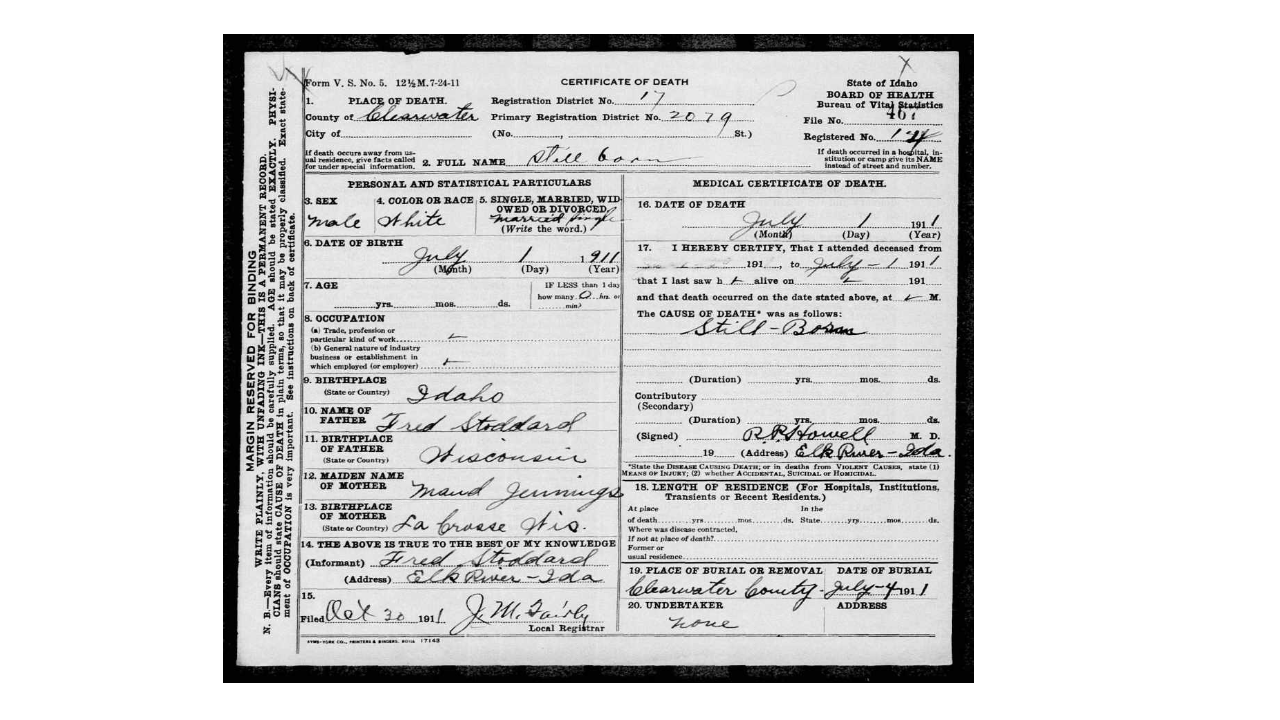 Form V. S. No. 5. 12½M. 7-24-11
CERTIFICATE OF DEATH
State of Idaho
BOARD OF HEALTH
Bureau of Vital Statistics
File No. 467
Registered No.
1. PLACE OF DEATH.
County of Clearwater
City of
Registration District No. 17
Primary Registration District No. 2079
(No. , St.)
If death occurs away from us-
ual residence, give facts called
for under special information.
2. FULL NAME Still born
If death occurred in a hospital, in-
stitution or camp give its NAME
instead of street and number.
PERSONAL AND STATISTICAL PARTICULARS
3. SEX
male
4. COLOR OR RACE
White
5. SINGLE, MARRIED, WID-
OWED OR DIVORCED
married single
(Write the word.)
6. DATE OF BIRTH
July 1 1911
(Month) (Day) (Year)
7. AGE
yrs. mos. ds.
IF LESS than 1 day
how many 0 hrs. or
min?
8. OCCUPATION
(a) Trade, profession or
particular kind of work
(b) General nature of industry
business or establishment in
which employed (or employer)
9. BIRTHPLACE
(State or Country) Idaho
10. NAME OF
FATHER Fred Stoddard
11. BIRTHPLACE
OF FATHER
(State or Country) Wisconsin
12. MAIDEN NAME
OF MOTHER Maud Jennings
13. BIRTHPLACE
OF MOTHER
(State or Country) La Crosse Wis.
14. THE ABOVE IS TRUE TO THE BEST OF MY KNOWLEDGE
(Informant) Fred Stoddard
(Address) Elk River - Ida
15.
Filed Oct 30 1911 J. M. Fairly
Local Registrar
SYMS-YORK CO., PRINTERS & BINDERS, BOISE 17143
MEDICAL CERTIFICATE OF DEATH.
16. DATE OF DEATH
July 1 1911
(Month) (Day) (Year)
17. I HEREBY CERTIFY, That I attended deceased from
191 , to July - 1 1911
that I last saw h alive on 191
and that death occurred on the date stated above, at M.
The CAUSE OF DEATH* was as follows:
Still - Born
(Duration) yrs. mos. ds.
Contributory
(Secondary)
(Duration) yrs. mos. ds.
(Signed) R. P. Howell M. D.
19 (Address) Elk River - Ida.
*State the DISEASE CAUSING DEATH; or in deaths from VIOLENT CAUSES, state (1)
MEANS OF INJURY; (2) whether ACCIDENTAL, SUICIDAL or HOMICIDAL.
18. LENGTH OF RESIDENCE (For Hospitals, Institutions,
Transients or Recent Residents.)
At place In the
of death yrs. mos. ds. State yrs. mos. ds.
Where was disease contracted,
If not at place of death?
Former or
usual residence
19. PLACE OF BURIAL OR REMOVAL
Clearwater County -
DATE OF BURIAL
July - 4 1911
20. UNDERTAKER
none
ADDRESS
MARGIN RESERVED FOR BINDING
WRITE PLAINLY, WITH UNFADING INK—THIS IS A PERMANENT RECORD.
N. B.—Every item of information should be carefully supplied. AGE should be stated EXACTLY. PHYSI-
CIANS should state CAUSE OF DEATH in plain terms, so that it may be properly classified. Exact state-
ment of OCCUPATION is very important. See instructions on back of certificate.